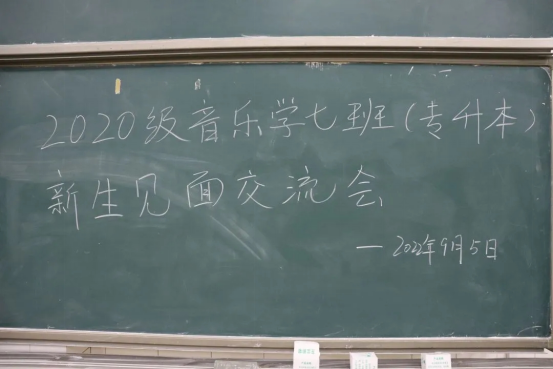 2020级音乐学七班(专升本)
新生见面交流会
—2022年9月5日